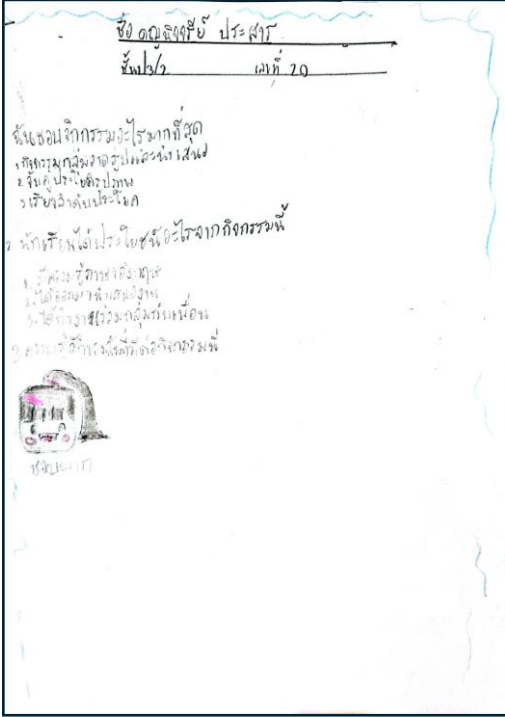 ชื่อ ดญ ประสาร
ชั้นป3/2 เลขที่ 20
ฉันชอบกิจกรรมอะไรมากที่สุด
1 กิจกรรมกลุ่มวาดรูปและนำเสนอ
2 จับคู่ประโยครูปภาพ
3 เรียงลำดับประโยค
2 นักเรียนได้ประโยชน์อะไรจากกิจกรรมนี้
1. มีความรู้ภาษาอังกฤษ
2. ได้ออกมานำเสนองาน
3. ได้ทำงานร่วมกลุ่มกับเพื่อน
3 ความรู้สึกของฉันที่มีต่อกิจกรรมนี้
ชอบมาก